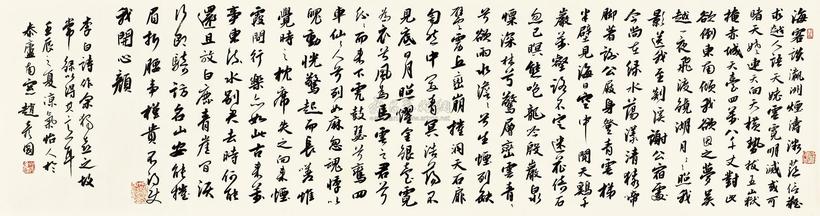 海客談瀛洲煙濤微茫信難
求越人語天姥雲霓明滅或可
睹天姥連天向天橫勢拔五嶽
掩赤城天臺四萬八千丈對此
欲倒東南傾我欲因之夢吳
越一夜飛渡鏡湖月湖月照我
影送我至剡溪謝公宿處
今尚在淥水蕩漾清猿啼
脚著謝公屐身登青雲梯
半壁見海日空中聞天雞千
巖萬壑路不定迷花倚石
忽已暝熊咆龍吟殷巖泉
慄深林兮驚層巔雲青青
兮欲雨水澹澹兮生煙列缺
霹靂丘巒崩摧洞天石扉
訇然中開青冥浩蕩不
見底日月照耀金銀臺霓
為衣兮風為馬雲之君兮
紛紛而來下虎鼓瑟兮鸞回
車仙之人兮列如麻忽魂悸以
魄動恍驚起而長嗟惟
覺時之枕席失之向來煙
霞間行樂亦如此古來萬
事東流水別君去時何時
還且放白鹿青崖間須
行即騎訪名山安能摧
眉折腰事權貴不得使
我開心顏
李白詩作余獨喜之故
常録以
壬辰之夏涼氣怡人於
泰廬南窗趙彥國